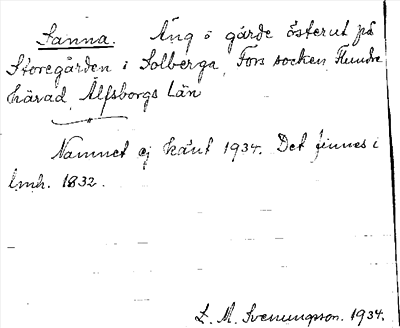 Sanna. Äng o gärde österut på
Storegården i Solberga, Fors socken Flundre
härad Älfsborgs Län
Namnet ej känt 1934. Det finnes i
lmh. 1832.
L. M. Svenungson. 1934.